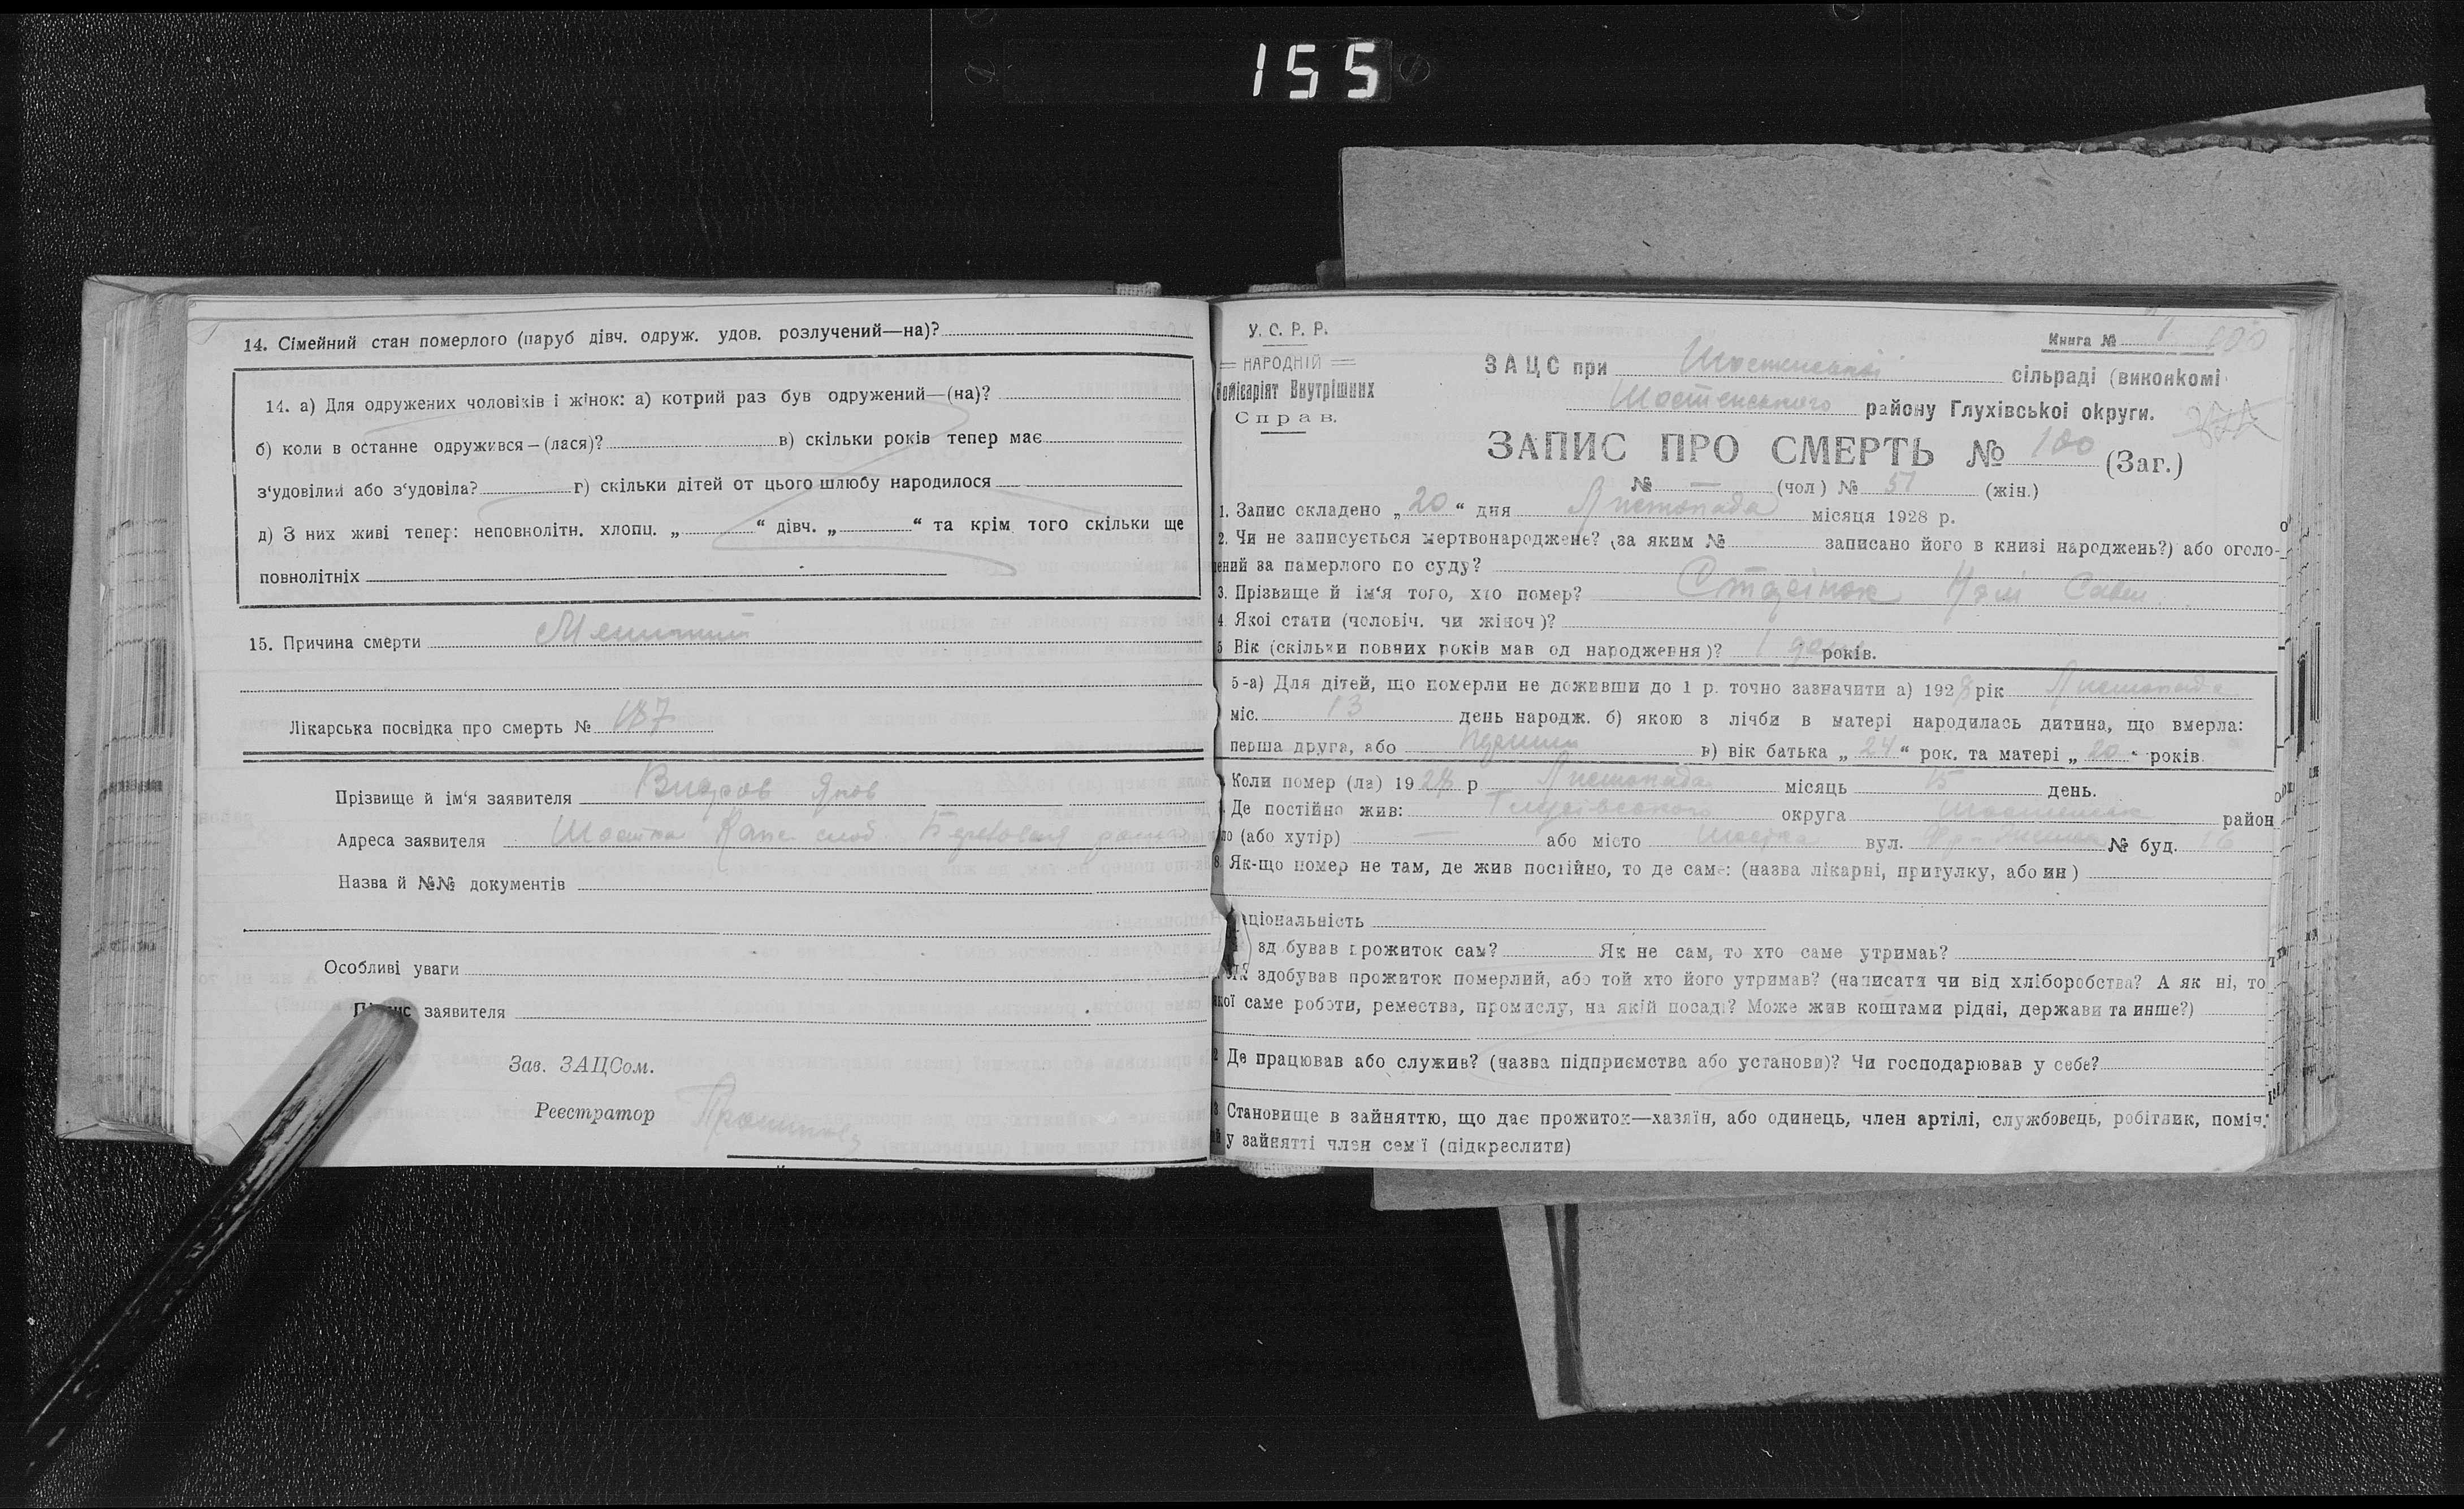 155
14. Сімейний стан померлого (паруб дівч. одруж. удов. розлучений—на)?
14. а) Для одружених чоловіків і жінок: а) котрий раз був одружений—(на)?
б) коли в останне одружився—(лася)? в) скільки років тепер має
з‘удовілий або з‘удовіла? г) скільки дітей от цього шлюбу народилося
д) З них живі тепер: неповнолітн. хлопц. „ “ дівч. „ “ та крім того скільки ще
повнолітніх
15. Причина смерти
Лікарська посвідка про смерть № 187
Прізвище й ім‘я заявителя
Адреса заявителя Шостка
Назва й №№ документів
Особливі уваги
заявителя
Зав. ЗАЦСом.
Реєстратор
У. С. Р. Р.
НАРОДНІЙ
Комісаріят Внутрішних
Справ.
Книга №
ЗАЦС при Шостенській сільраді (виконкомі
Шостенського району Глухівської округи.
ЗАПИС ПРО СМЕРТЬ № 100 (Заг.)
№ — (чол) № 51 (жін.)
1. Запис складено „20“ дня Листопада місяця 1928 р.
2. Чи не записується мертвонароджене? (за яким № записано його в книзі народжень?) або оголо-
ений за памерлого по суду?
3. Прізвище й ім‘я того, хто помер?
4. Якої стати (чоловіч. чи жіноч)?
5 Вік (скільки повних років мав од народження)? 1 років.
5-а) Для дітей, що померли не доживши до 1 р. точно зазначити а) 1928 рік Листопада
міс. 13 день народж. б) якою з лічби в матері народилась дитина, що вмерла:
перша друга, або в) вік батька „24“ рок. та матері „20“ років.
Коли помер (ла) 1928 р Листопада місяць 15 день.
Де постійно жив: Глухівського округа район
ло (або хутір) — або місто Шостка вул. № буд. 16
8. Як-що помер не там, де жив постійно, то де саме: (назва лікарні, притулку, або ин)
аціональність
здобував прожиток сам? Як не сам, то хто саме утримаь?
Як здобував прожиток померлий, або той хто його утримав? (написати чи від хліборобства? А як ні, то
якої саме роботи, ремества, промислу, на якій посаді? Може жив коштами рідні, держави та инше?)
2 Де працював або служив? (назва підприємства або установи)? Чи господарював у себе?
3 Становище в зайняттю, що дає прожиток—хазяїн, або одинець, член артілі, службовець, робітник, поміч.
у зайнятті член сем‘ї (підкреслити)